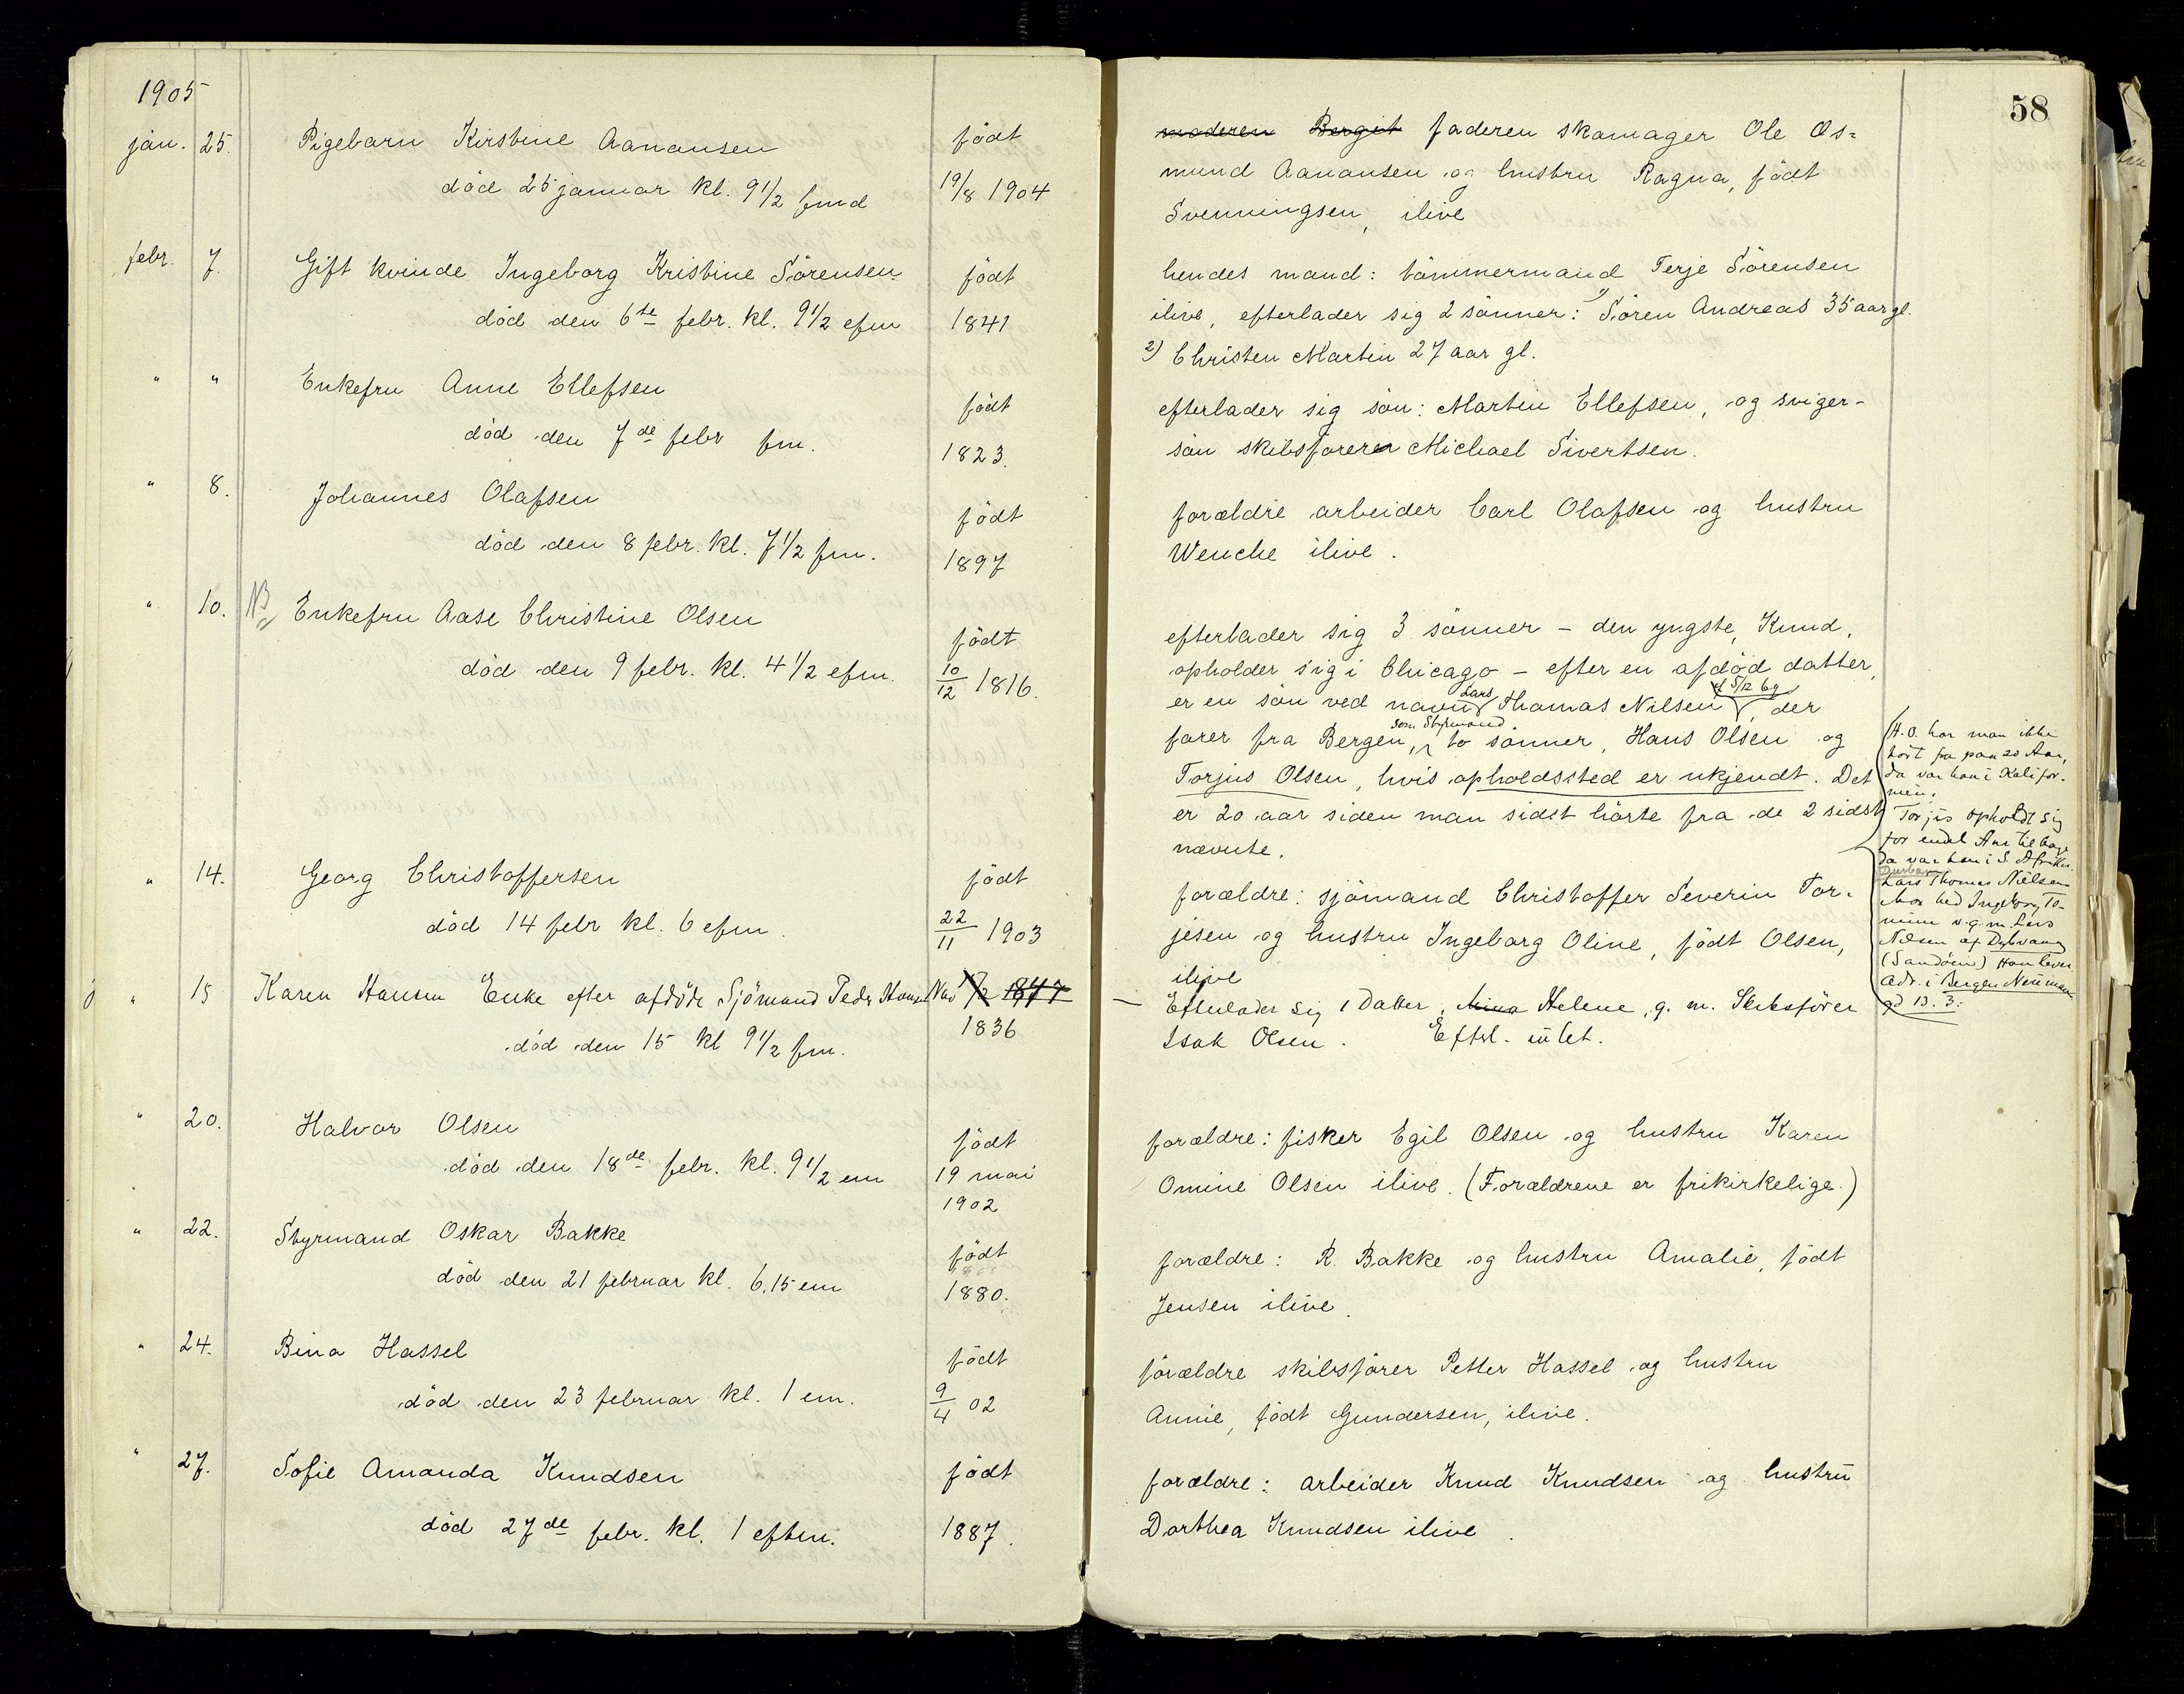 1905
jan. 25. Pigebarn Kirstine Aanansen født
död 25 januar kl. 9 1/2 fmd 19/8 1904
febr. 7. Gift kvinde Ingeborg Kristine Sörensen födt
död den 6te febr. kl. 9 1/2 efm 1841
" " Enkefru Anne Ellefsen födt
död den 7de febr fm. 1823.
" 8. Johannes Olafsen födt
död den 8 febr. kl. 7 1/2 fm. 1897
" 10. NB Enkefru Aase Christine Olsen födt
död den 9 febr. kl. 4 1/2 efm. 10/12 1816.
" 14. Georg Christoffersen födt
död 14 febr kl. 6 efm. 22/11 1903
" 15 Karen Hansen Enke efter afdöde Sjömand Peder Hansen 1847
död den 15 kl 9 1/2 fm. 1836
" 20. Halvor Olsen födt
död den 18de febr. kl. 9 1/2 em 19 mai
1902
" 22. Styrmand Oskar Bakke födt
död den 21 februar kl. 6.15 em 1880.
" 24. Bina Hassel födt
död den 23 februar kl. 1 em. 9/4 02
" 27. Sofie Amanda Knudsen födt
död 27de febr. kl. 1 eftm. 1887.
58
moderen Bergit faderen skomager Ole Os-
mund Aanansen og hustru Ragna, födt
Svenningsen, ilive
hendes mand: tömmermand Terje Sörensen
ilive, efterlader sig 2 sönner: 1) Sören Andreas 35 aar gl.
2) Christen Martin 27 aar gl.
efterlader sig sön: Martin Ellefsen, og sviger-
sön skibsförerer Michael Sivertsen.
forældre arbeider Carl Olafsen og hustru
Wenche ilive.
efterlader sig 3 sönner – den yngste, Knud,
opholder sig i Chicago – efter en afdöd datter,
er en sön ved navn Lars Thomas Nilsen f 5/12 69, der
farer fra Bergen, som Styrmand to sönner, Hans Olsen og
Torjus Olsen, hvis opholdssted er ukjendt. Det
er 20 aar siden man sidst hörte fra de 2 sidst
nævnte.
H. O. har man ikke
hört fra paa 20 Aar,
da var han i Kalifor-
nien.
Torjus opholdt sig
for endel Aar tilbage
da var han i S. Afrika
Durban
Lars Thomas Nilsens
Mor hed Ingeborg To-
mine v. g. m. Lars
Nilsen af Dybvaag
(Sandöen) Han lever
adr. i Bergen
13. 3.
forældre: sjömand Christoffer Severin Tor-
jesen og hustru Ingeborg Oline, födt Olsen,
ilive
Efterlader sig 1 Datter, Mina Helene, g. m. Skibsförer
Isak Olsen. Efterl. intet.
forældre: fisker Egil Olsen og hustru Karen
Omine Olsen ilive. (Forældrene er frikirkelige.)
forældre: R. Bakke og hustru Amalie, födt
Jensen ilive.
forældre skibsförer Petter Hassel og hustru
Annie, födt Gundersen, ilive.
forældre: arbeider Knud Knudsen og hustru
Dorthea Knudsen ilive.